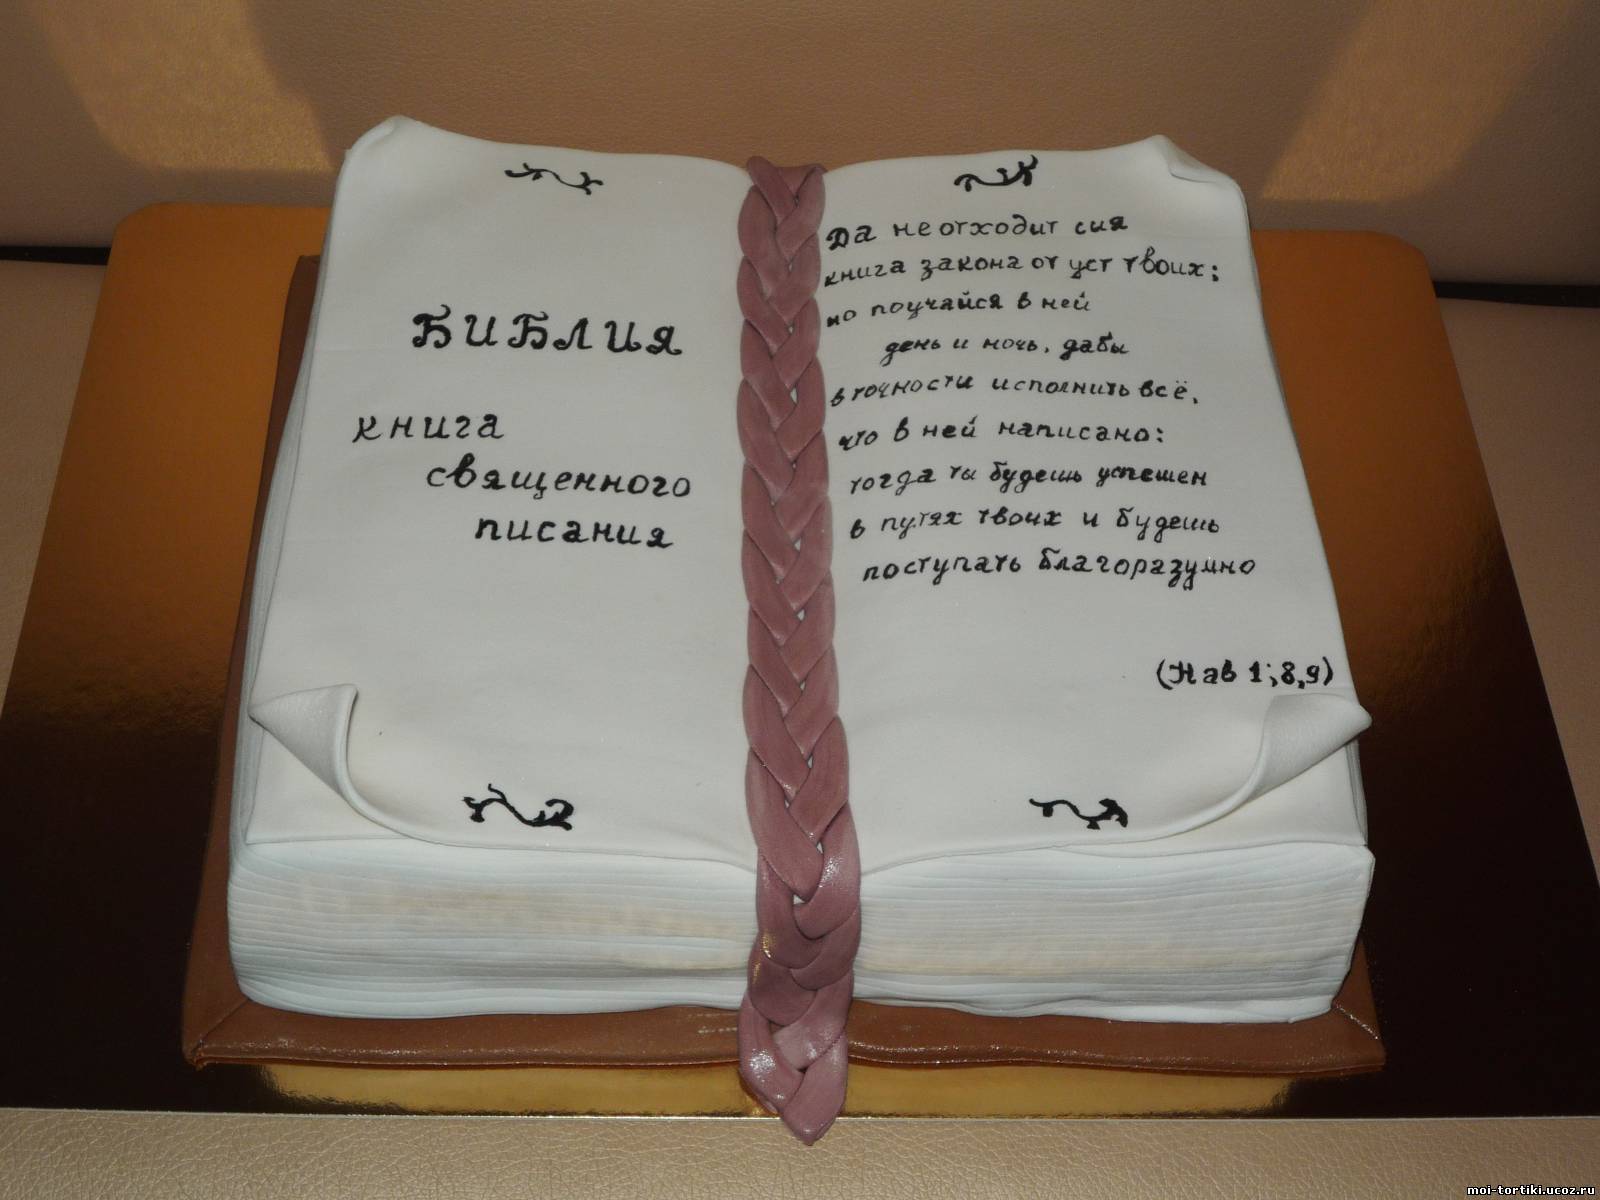 БИБЛИЯ
книга
священного
писания
Да не отходит сия
книга закона от уст твоих;
но поучайся в ней
день и ночь, дабы
в точности исполнить всё,
что в ней написано:
тогда ты будешь успешен
в путях твоих и будешь
поступать благоразумно
(Нав 1;8,9)
moi-tortiki.ucoz.ru